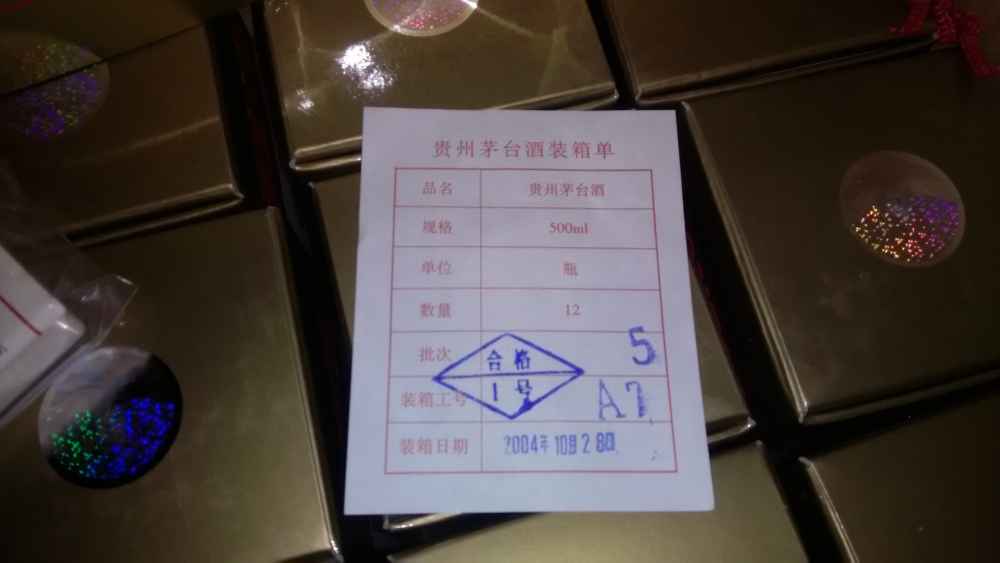 贵州茅台酒装箱单
品名 贵州茅台酒
规格 500ml
单位 瓶
数量 12
批次 5
合格
1号
装箱工号 A7
装箱日期 2004年10月28日